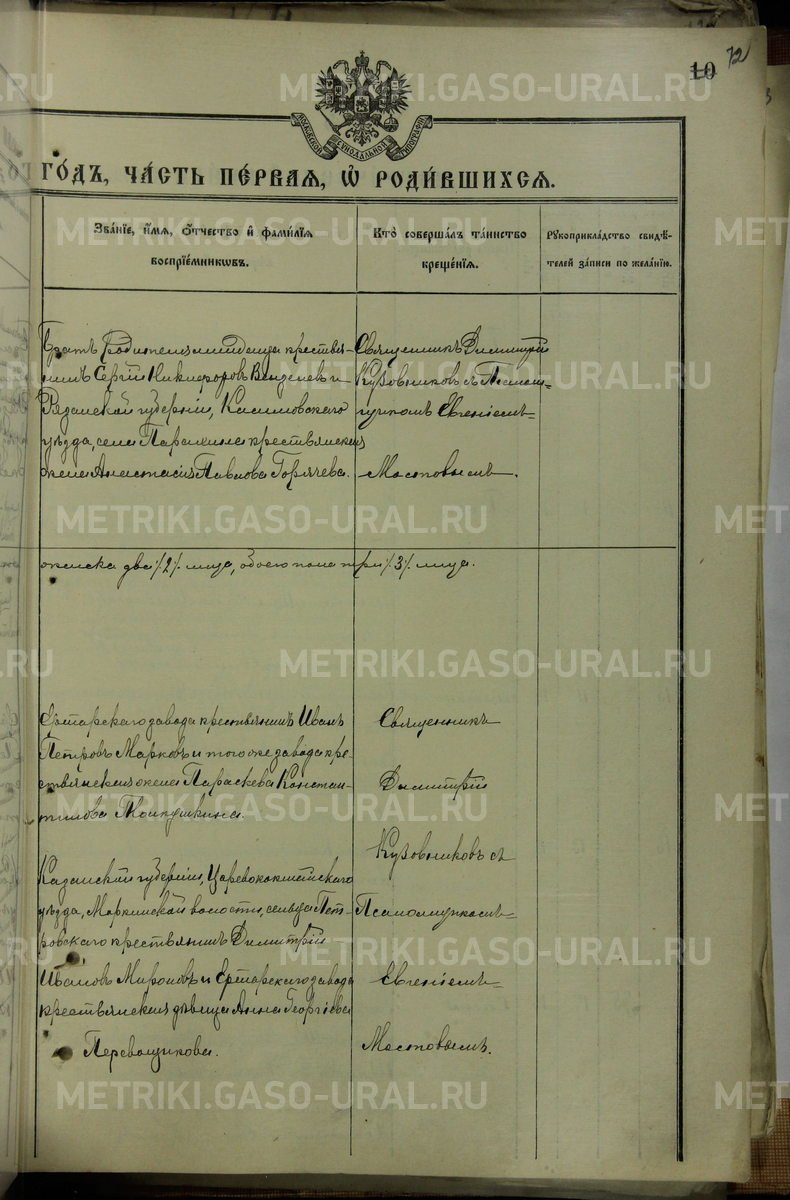 10 72
МОСКОВСКОЙ СѴНОДАЛЬНОЙ ТИПОГРАФІИ
ГО́ДЪ, ЧА́СТЬ ПЕ́РВАЯ, Ѡ҆ РОДИ́ВШИХСЯ.
Зва́нїе, и҆́мя, ѻ҆́тчество и҆ фами́лїя
воспрїе́мникѡвъ.
Кто̀ соверша́лъ та́инство
креще́нїя.
Рꙋкоприкла́дство свидѣ́-
телей за́писи по жела́нїю.
Братъ родителя младенца крестья-
нинъ Сергій Никифоровъ и
Рязанской губерніи, Касимовскаго
уѣзда, села крестьянская
жена Анастасія Павлова Горячева.
Священникъ Димитрій
Кузовниковъ съ Псалом-
щикомъ Евгеніемъ
Мостовымъ.
женска два /2/ лица, обоего пола три /3/ лица.
завода крестьянинъ Иванъ
Петровъ Марковъ и того же завода кре-
стьянская жена Параскева Констан-
тинова
Священникъ
Димитрій
Кузовниковъ съ
Казанской губерніи, Царевококшайскаго
уѣзда, Моркинской волости, сельца Пет-
ровскаго крестьянинъ Димитрій
Ивановъ Мироновъ и завода
крестьянская дѣвица Анна Георгіева
Перевощикова.
Псаломщикомъ
Евгеніемъ
Мостовымъ.
METRIKI.GASO-URAL.RU